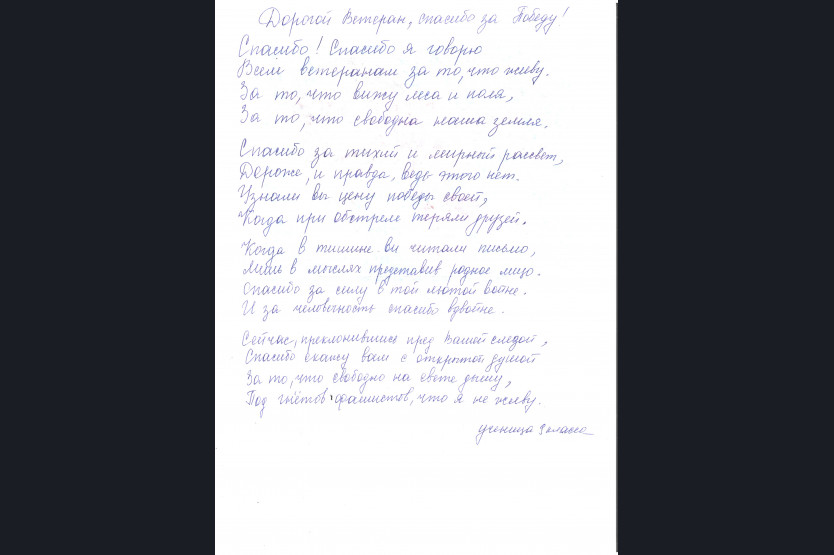 Дорогой Ветеран, спасибо за Победу!
Спасибо! Спасибо я говорю
Всем ветеранам за то, что живу.
За то, что вижу леса и поля,
За то, что свободна наша земля.
Спасибо за тихий и мирный рассвет,
Дороже, и правда, ведь этого нет.
Узнали вы цену победы своей,
Когда при обстреле теряли друзей.
Когда в тишине вы читали письмо,
Лишь в мыслях представив родное лицо.
Спасибо за силу в той лютой войне.
И за человечность спасибо вдвойне.
Сейчас, преклонившись пред Вашей следой,
Спасибо скажу вам с открытой душой
За то, что свободно на свете дышу,
Под гнётов фашистов, что я не живу.
ученица 9 класса